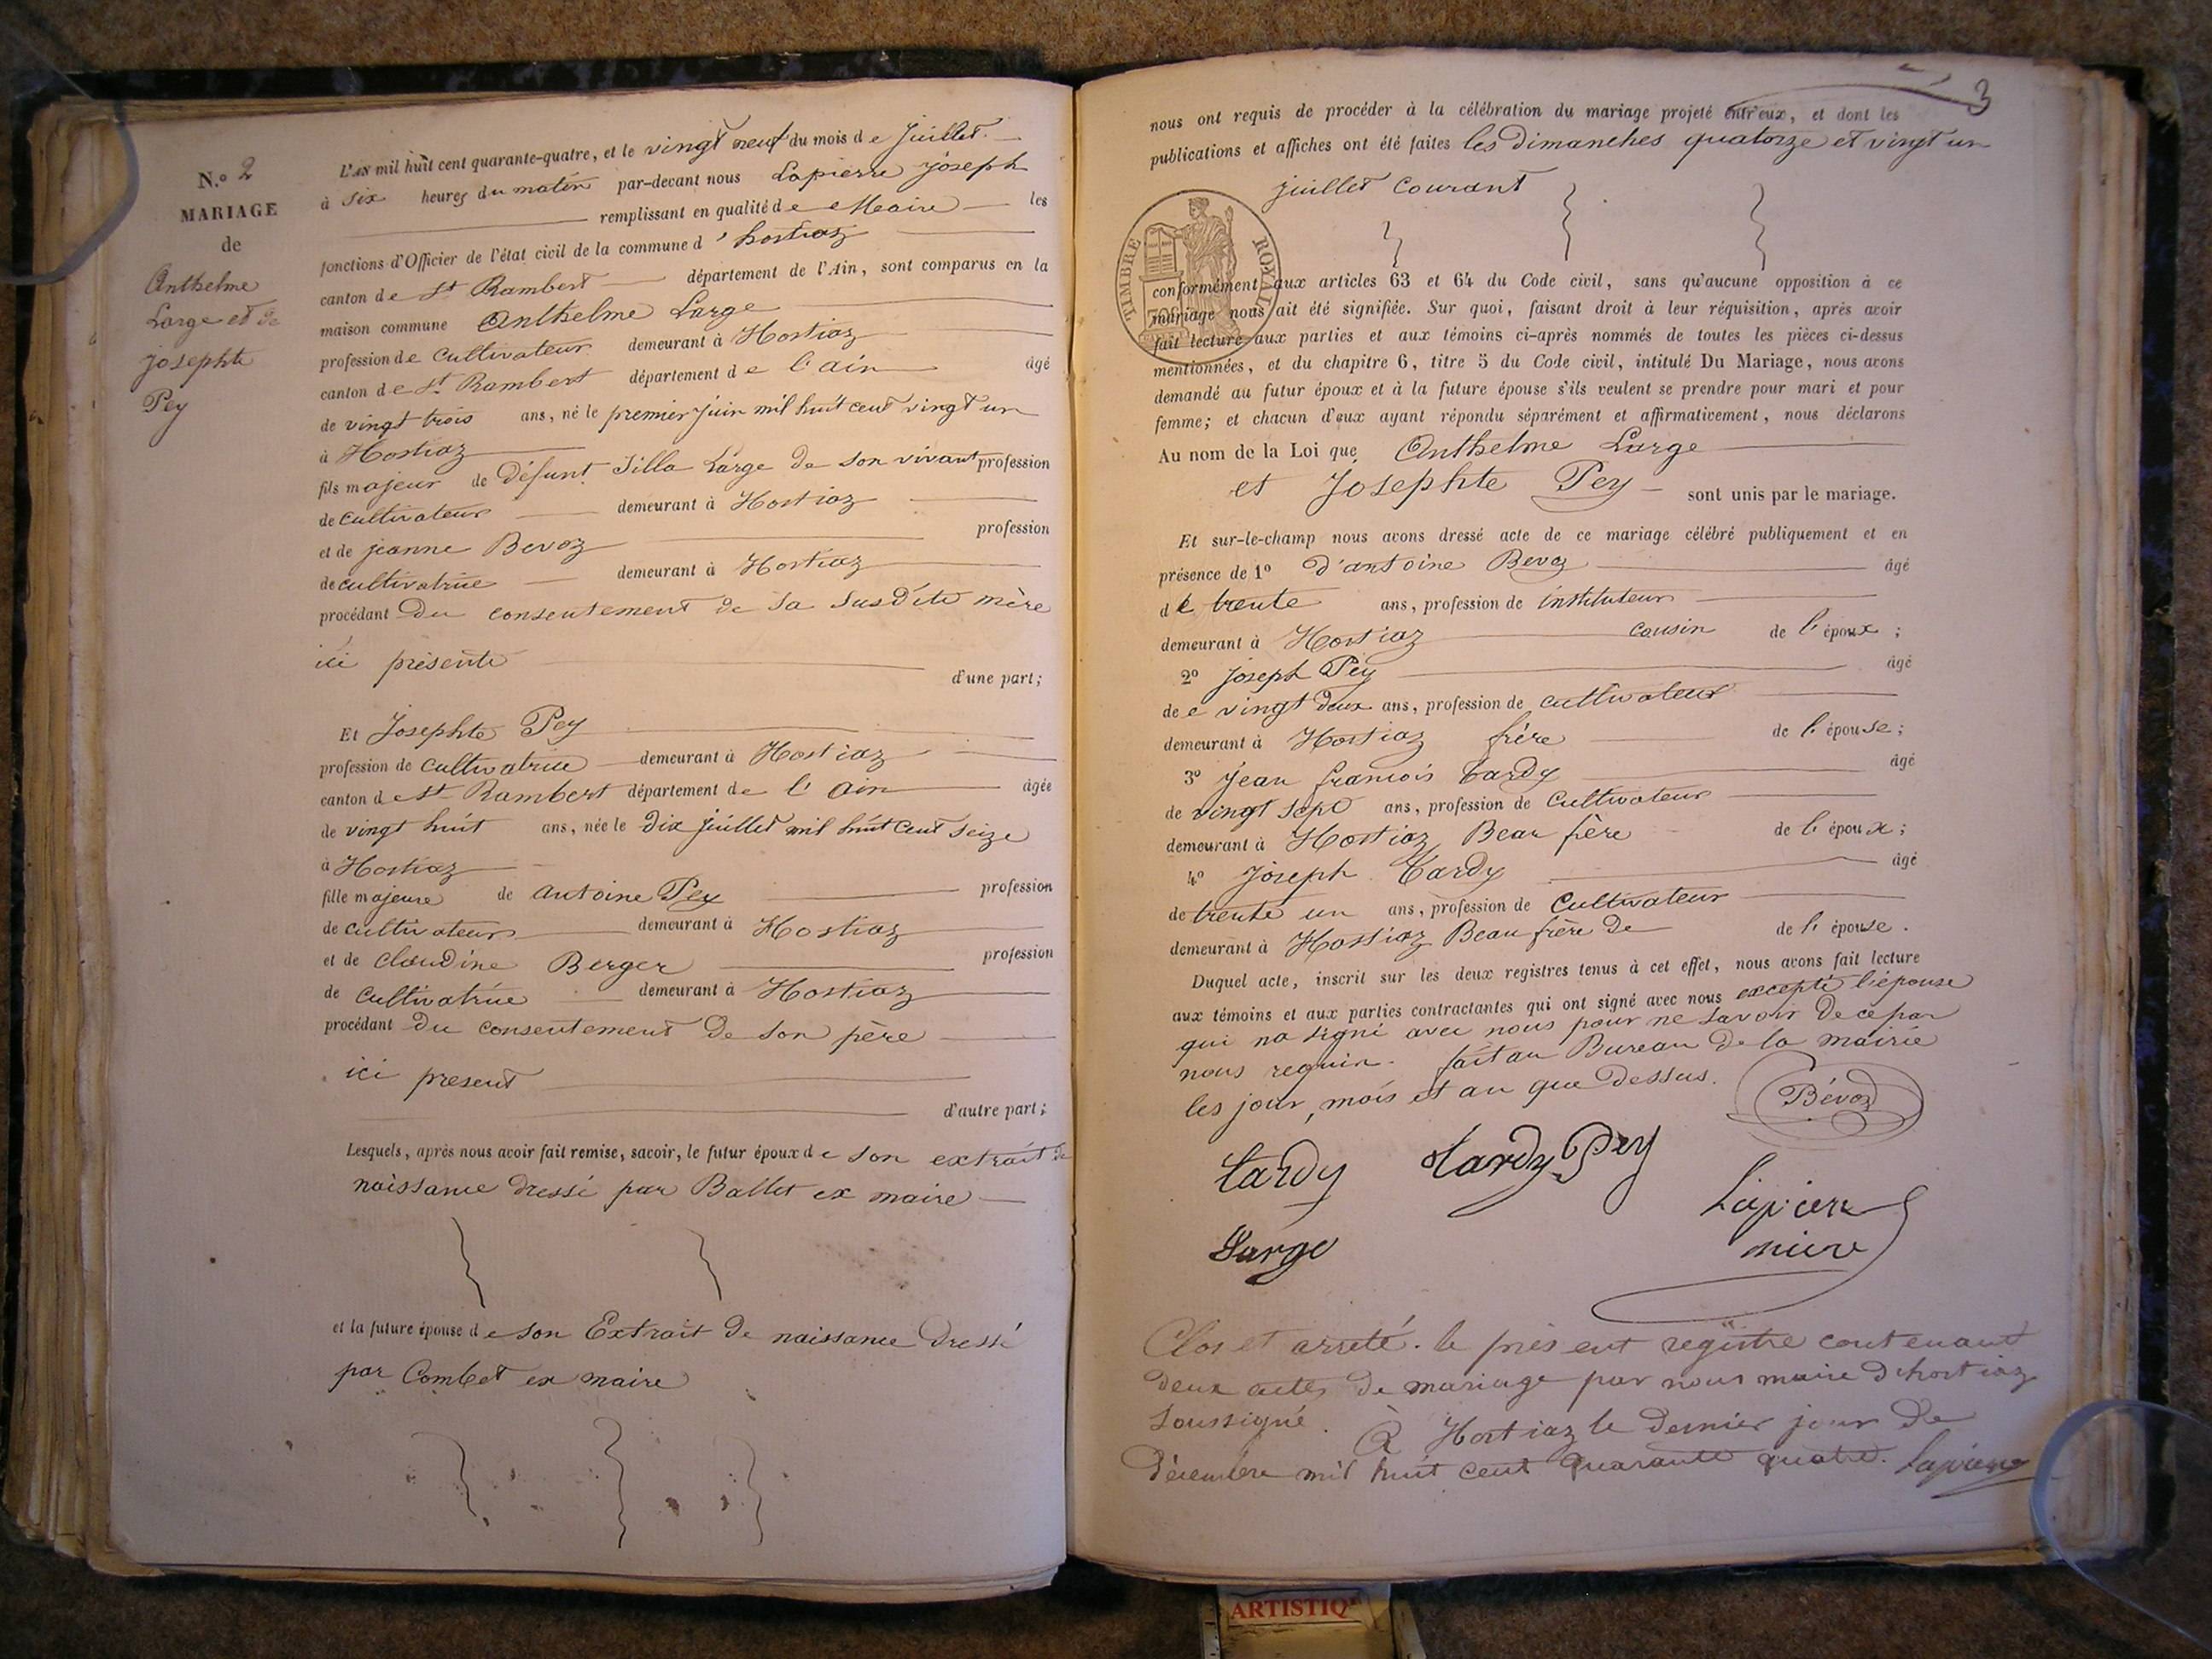 N.o 2
MARIAGE
de
Anthelme
Large et de
josephte
Pey
L'AN mil huit cent quarante-quatre, et le vingt neuf du mois de Juillet
à six heures du matin par-devant nous Lapierre joseph
remplissant en qualité de Maire les
fonctions d'Officier de l'état civil de la commune d'hostiaz
canton de St Rambert département de l'Ain, sont comparus en la
maison commune Anthelme Large
profession de cultivateur demeurant à Hostiaz
canton de St Rambert département de l'ain âgé
de vingt trois ans, né le premier juin mil huit cent vingt un
à Hostiaz
fils majeur de Défunt Large de son vivant profession
de cultivateur demeurant à Hostiaz
et de jeanne Bevoz profession
de cultivatrice demeurant à Hostiaz
procédant Du consentement de sa susdite mère
ici présente
d'une part;
Et Josephte Pey
profession de cultivatrice demeurant à Hostiaz
canton de St Rambert département de l'ain âgée
de vingt huit ans, née le dix juillet mil huit cent seize
à Hostiaz
fille majeure de antoine Pey profession
de cultivateur demeurant à Hostiaz
et de claudine Berger profession
de cultivatrice demeurant à Hostiaz
procédant du consentement de son père
ici present
d'autre part;
Lesquels, après nous avoir fait remise, savoir, le futur époux de son extrait de
naissance dressé par Ballet ex maire
et la future épouse de son Extrait de naissance dressé
par Combet ex maire
3
nous ont requis de procéder à la célébration du mariage projeté entr'eux, et dont les
publications et affiches ont été faites les dimanches quatorze et vingt un
juillet courant
TIMBRE ROYAL
conformément aux articles 63 et 64 du Code civil, sans qu'aucune opposition à ce
mariage nous ait été signifiée. Sur quoi, faisant droit à leur réquisition, après avoir
fait lecture aux parties et aux témoins ci-après nommés de toutes les pièces ci-dessus
mentionnées, et du chapitre 6, titre 5 du Code civil, intitulé Du Mariage, nous avons
demandé au futur époux et à la future épouse s'ils veulent se prendre pour mari et pour
femme; et chacun d'eux ayant répondu séparément et affirmativement, nous déclarons
Au nom de la Loi que Anthelme Large
et Josephte Pey sont unis par le mariage.
Et sur-le-champ nous avons dressé acte de ce mariage célébré publiquement et en
présence de 1o d'antoine Bevoz âgé
de trente ans, profession de instituteur
demeurant à Hostiaz cousin de l'époux;
2o joseph Pey âgé
de e vingt deux ans, profession de cultivateur
demeurant à Hostiaz frère de l'épouse;
3o Jean francois Tardy âgé
de vingt sept ans, profession de cultivateur
demeurant à Hostiaz Beau frère de l'époux;
4o joseph Tardy âgé
de trente un ans, profession de Cultivateur
demeurant à Hostiaz Beau frère de de l'épouse.
Duquel acte, inscrit sur les deux registres tenus à cet effet, nous avons fait lecture
aux témoins et aux parties contractantes qui ont signé avec nous excepté l'épouse
qui na signé avec nous pour ne savoir de ce par
nous requir. fait au Bureau de la mairie
les jour, mois et an que dessus.
Bévoz
tardy tardy Pey
Lapierre
Large maire
Clos et arreté. le présent registre contenant
deux actes de mariage par nous maire dhostiaz
soussigné. à Hostiaz le dernier jour de
décembre mil huit cent quarante quatre. Lapierre
ARTISTIQ